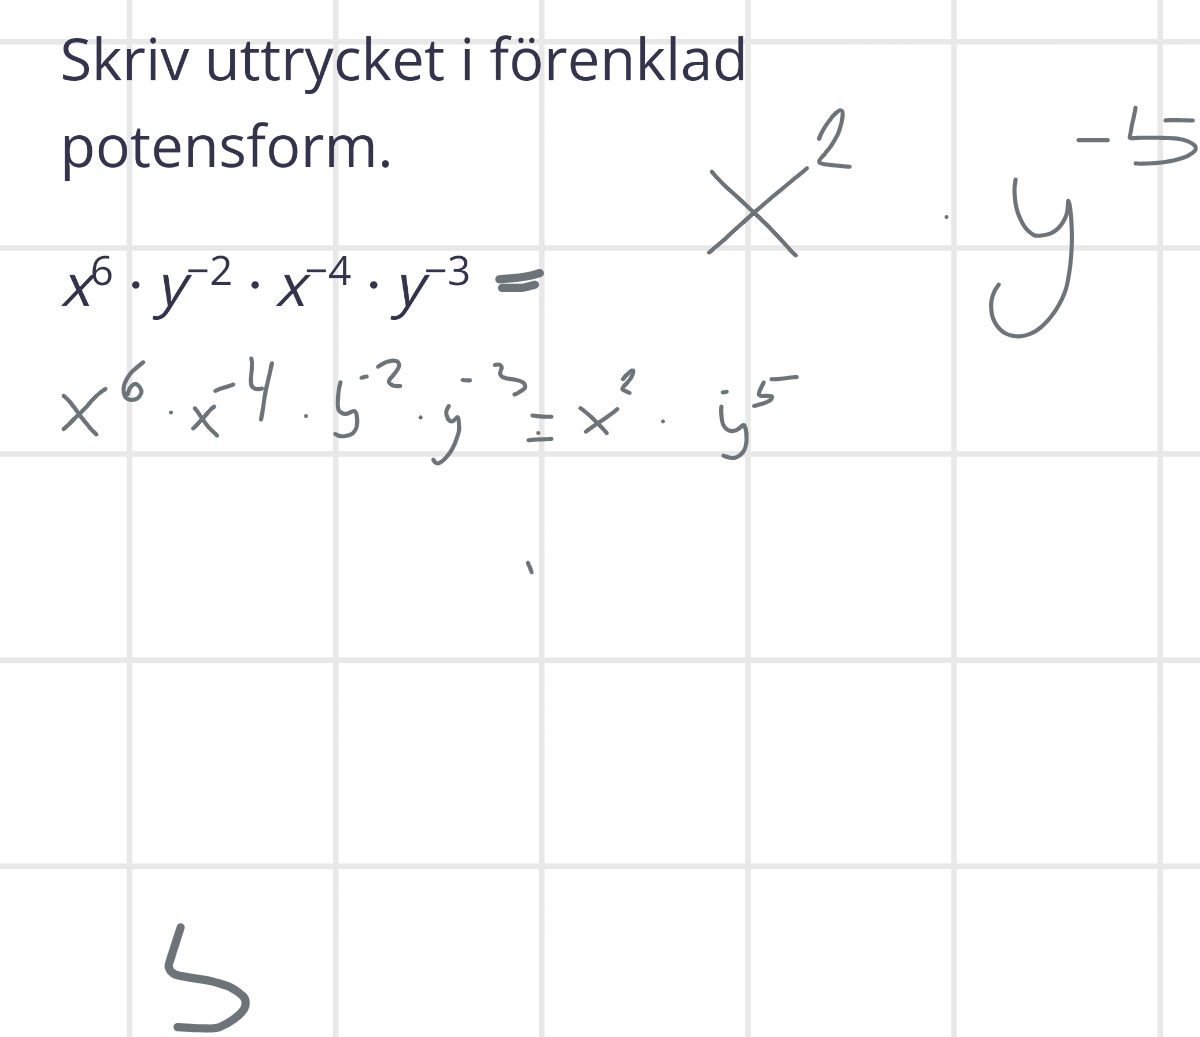 Skriv uttrycket i förenklad
potensform.
x² · y⁻⁵
x⁶ · y⁻² · x⁻⁴ · y⁻³ =
x⁶ · x⁻⁴ · y⁻² · y⁻³ = x² · y⁻⁵
5